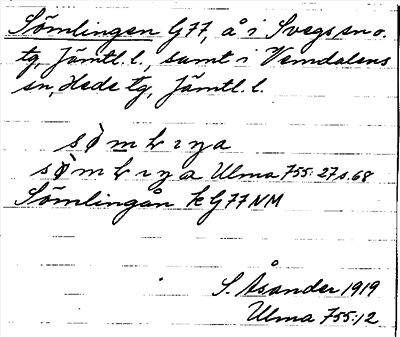 Sömlingen G77, å i Svegs sn o.
tg, Jämtl. l., samt i Vemdalens
sn, Hede tg, Jämtl. l.
Ulma 755:27 s. 68
Sömlingån k G77 NM
S. Åsander 1919
Ulma 755:12